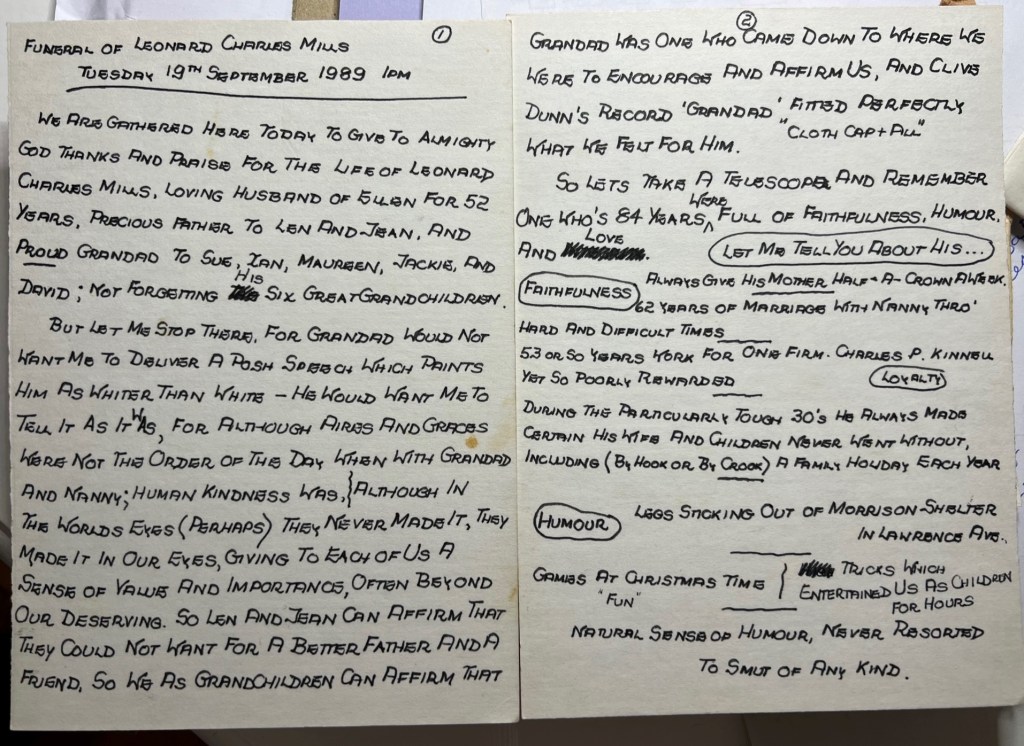 ①
FUNERAL OF LEONARD CHARLES MILLS
TUESDAY 19TH SEPTEMBER 1989 1PM
WE ARE GATHERED HERE TODAY TO GIVE TO ALMIGHTY
GOD THANKS AND PRAISE FOR THE LIFE OF LEONARD
CHARLES MILLS, LOVING HUSBAND OF ELLEN FOR 52
YEARS, PRECIOUS FATHER TO LEN AND JEAN, AND
PROUD GRANDAD TO SUE, IAN, MAUREEN, JACKIE, AND
DAVID; NOT FORGETTING HIS SIX GREATGRANDCHILDREN.
BUT LET ME STOP THERE, FOR GRANDAD WOULD NOT
WANT ME TO DELIVER A POSH SPEECH WHICH PAINTS
HIM AS WHITER THAN WHITE – HE WOULD WANT ME TO
TELL IT AS IT WAS, FOR ALTHOUGH AIRES AND GRACES
WERE NOT THE ORDER OF THE DAY WHEN WITH GRANDAD
AND NANNY; HUMAN KINDNESS WAS, } ALTHOUGH IN
THE WORLDS EYES (PERHAPS) THEY NEVER MADE IT, THEY
MADE IT IN OUR EYES, GIVING TO EACH OF US A
SENSE OF VALUE AND IMPORTANCE, OFTEN BEYOND
OUR DESERVING. SO LEN AND JEAN CAN AFFIRM THAT
THEY COULD NOT WANT FOR A BETTER FATHER AND A
FRIEND, SO WE AS GRANDCHILDREN CAN AFFIRM THAT
②
GRANDAD WAS ONE WHO CAME DOWN TO WHERE WE
WERE TO ENCOURAGE AND AFFIRM US, AND CLIVE
DUNN'S RECORD 'GRANDAD' FITTED PERFECTLY
"CLOTH CAP + ALL"
WHAT WE FELT FOR HIM.
SO LETS TAKE A TELESCOPE AND REMEMBER
ONE WHO'S 84 YEARS WERE FULL OF FAITHFULNESS, HUMOUR,
AND LOVE. LET ME TELL YOU ABOUT HIS...
FAITHFULNESS ALWAYS GIVE HIS MOTHER HALF-A-CROWN A WEEK.
62 YEARS OF MARRIAGE WITH NANNY THRO'
HARD AND DIFFICULT TIMES
53 OR SO YEARS WORK FOR ONE FIRM. CHARLES P. KINNELL
YET SO POORLY REWARDED LOYALTY
DURING THE PARTICULARLY TOUGH 30'S HE ALWAYS MADE
CERTAIN HIS WIFE AND CHILDREN NEVER WENT WITHOUT,
INCLUDING (BY HOOK OR BY CROOK) A FAMILY HOLIDAY EACH YEAR
HUMOUR LEGS STICKING OUT OF MORRISON-SHELTER
IN LAWRENCE AVE.
GAMES AT CHRISTMAS TIME } TRICKS WHICH
"FUN" ENTERTAINED US AS CHILDREN
FOR HOURS
NATURAL SENSE OF HUMOUR, NEVER RESORTED
TO SMUT OF ANY KIND.